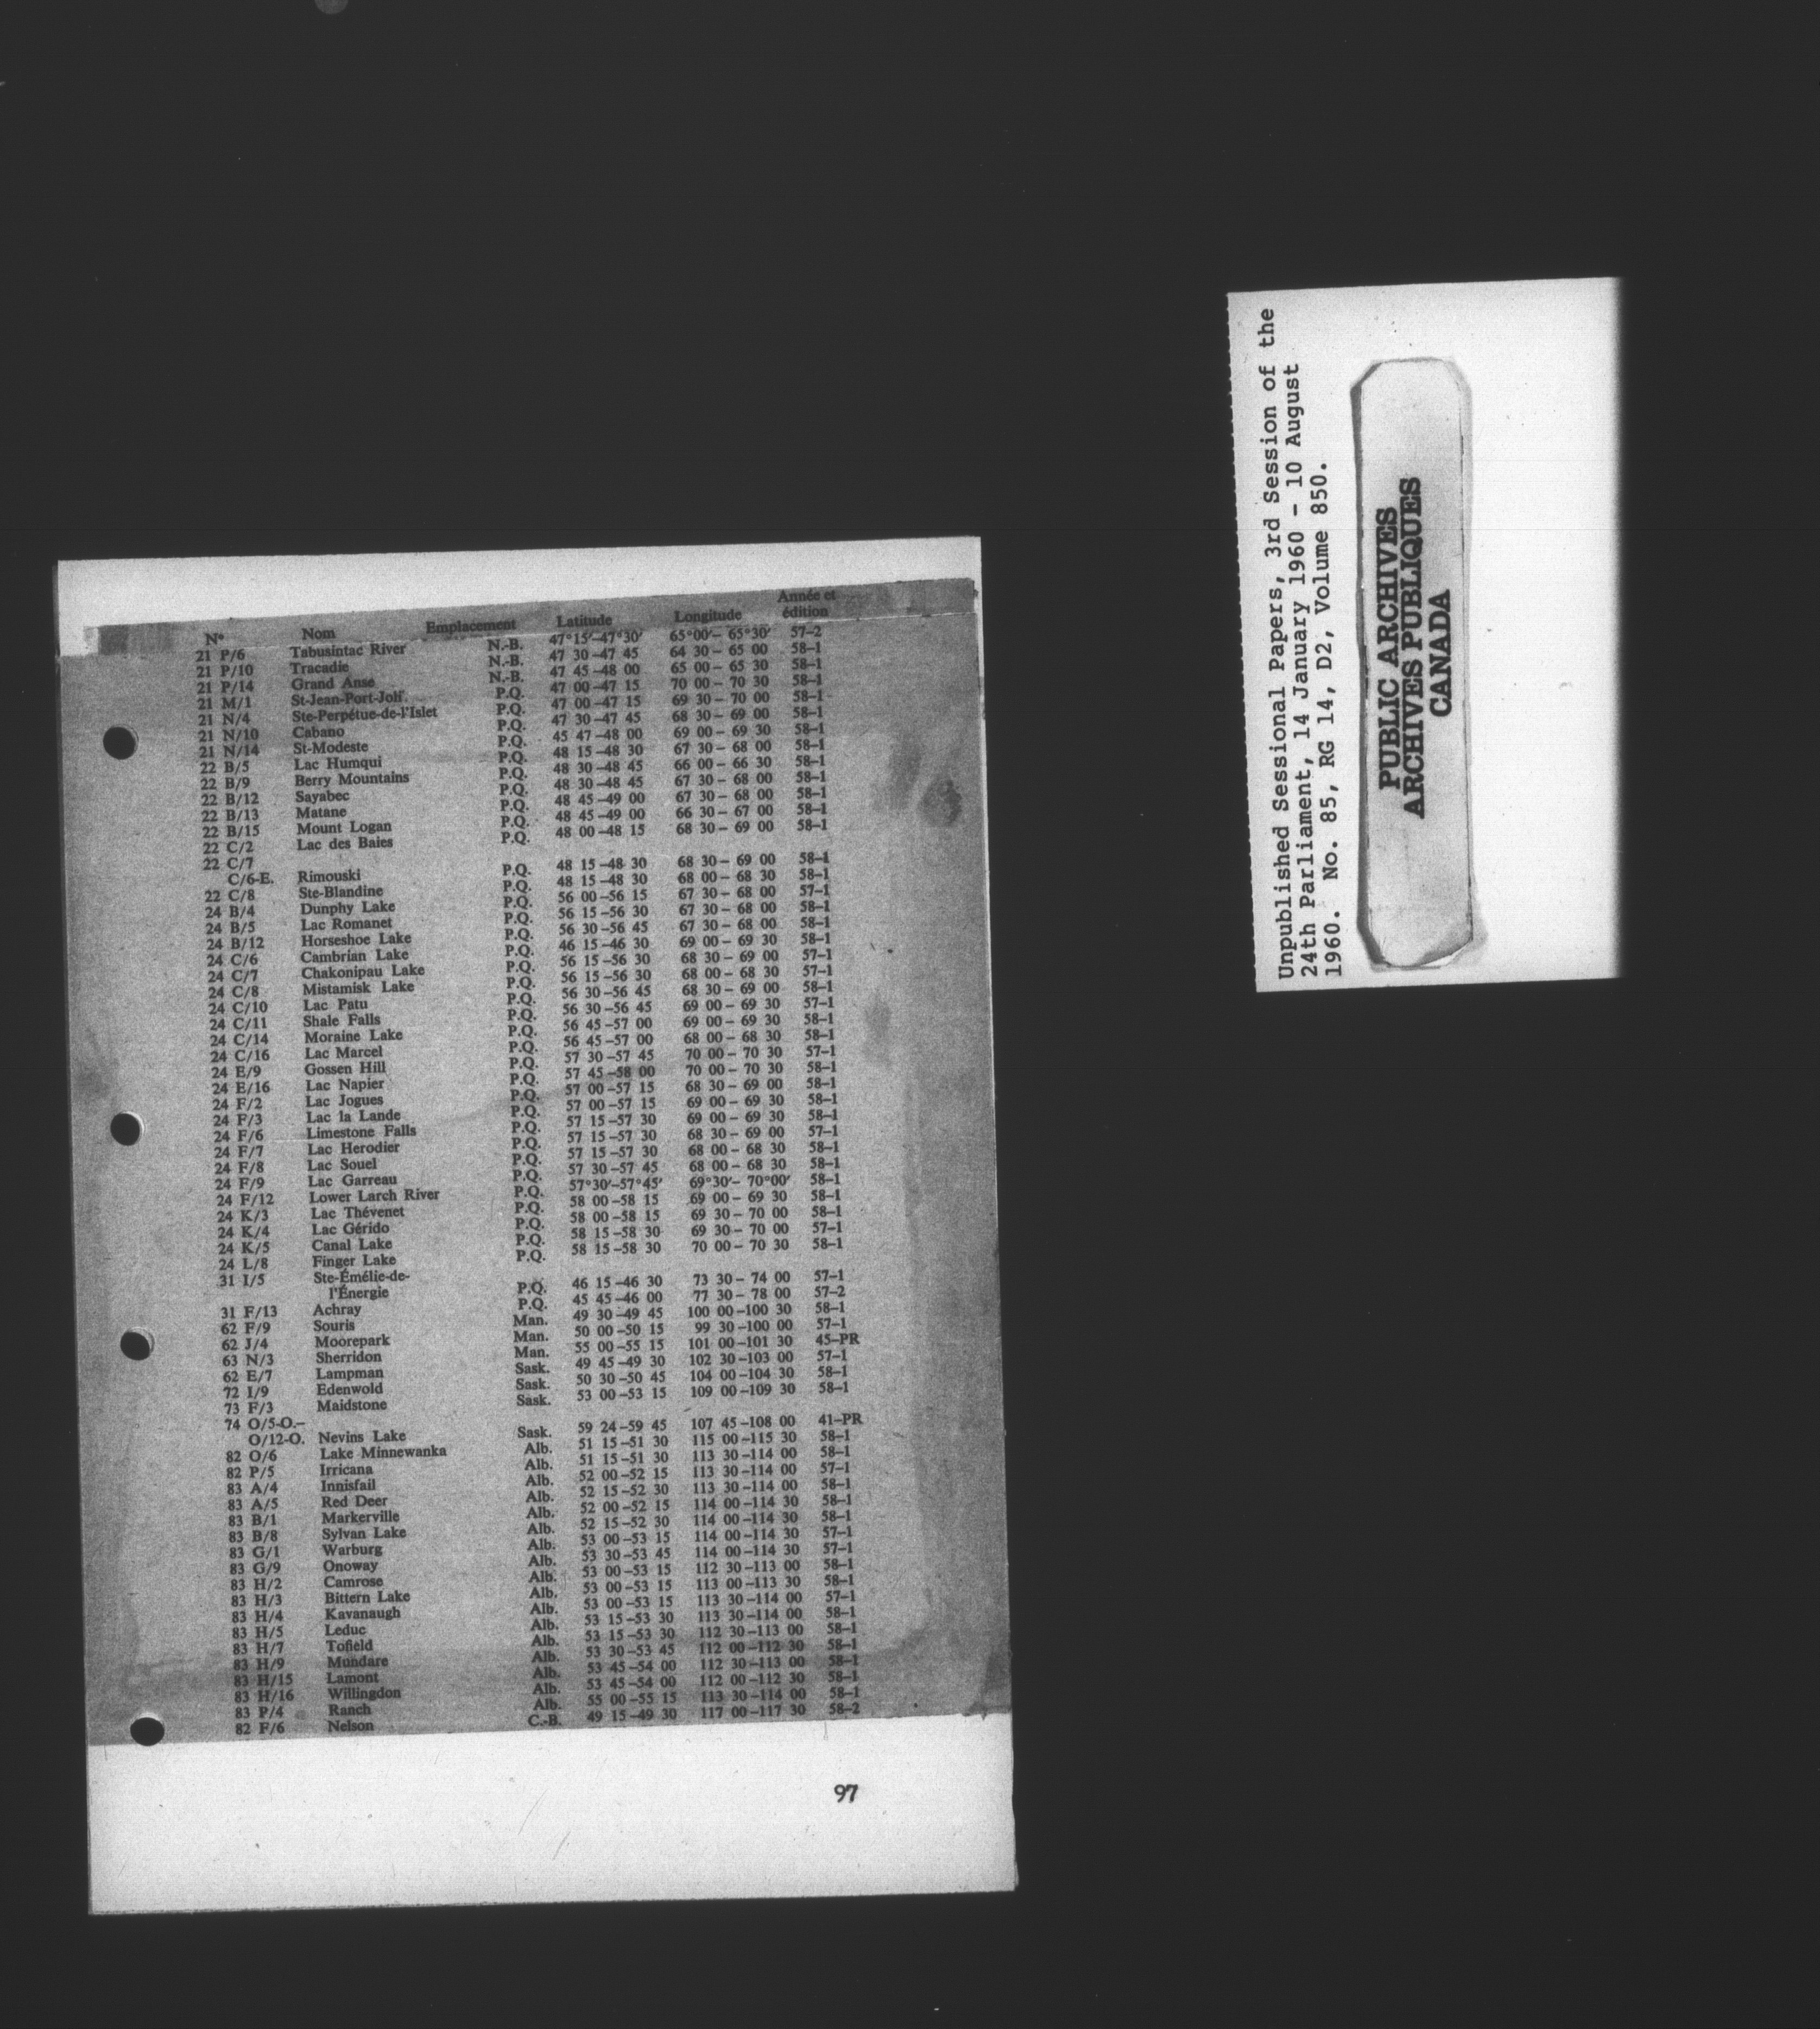 Nº Nom Emplacement Latitude Longitude Année et édition
21 P/6 Tabusintac River N.-B. 47°15′–47°30′ 65°00′– 65°30′ 57–2
21 P/10 Tracadie N.-B. 47 30–47 45 64 30– 65 00 58–1
21 P/14 Grand Anse N.-B. 47 45–48 00 65 00– 65 30 58–1
21 M/1 St-Jean-Port-Joli P.Q. 47 00–47 15 70 00– 70 30 58–1
21 N/4 Ste-Perpétue-de-l'Islet P.Q. 47 00–47 15 69 30– 70 00 58–1
21 N/10 Cabano P.Q. 47 30–47 45 68 30– 69 00 58–1
21 N/14 St-Modeste P.Q. 45 47–48 00 69 00– 69 30 58–1
22 B/5 Lac Humqui P.Q. 48 15–48 30 67 30– 68 00 58–1
22 B/9 Berry Mountains P.Q. 48 30–48 45 66 00– 66 30 58–1
22 B/12 Sayabec P.Q. 48 30–48 45 67 30– 68 00 58–1
22 B/13 Matane P.Q. 48 45–49 00 67 30– 68 00 58–1
22 B/15 Mount Logan P.Q. 48 45–49 00 66 30– 67 00 58–1
22 C/2 Lac des Baies P.Q. 48 00–48 15 68 30– 69 00 58–1
22 C/7
C/6-E. Rimouski P.Q. 48 15–48 30 68 30– 69 00 58–1
22 C/8 Ste-Blandine P.Q. 48 15–48 30 68 00– 68 30 58–1
24 B/4 Dunphy Lake P.Q. 56 00–56 15 67 30– 68 00 57–1
24 B/5 Lac Romanet P.Q. 56 15–56 30 67 30– 68 00 58–1
24 B/12 Horseshoe Lake P.Q. 56 30–56 45 67 30– 68 00 58–1
24 C/6 Cambrian Lake P.Q. 46 15–46 30 69 00– 69 30 58–1
24 C/7 Chakonipau Lake P.Q. 56 15–56 30 68 30– 69 00 57–1
24 C/8 Mistamisk Lake P.Q. 56 15–56 30 68 00– 68 30 57–1
24 C/10 Lac Patu P.Q. 56 30–56 45 68 30– 69 00 58–1
24 C/11 Shale Falls P.Q. 56 30–56 45 69 00– 69 30 57–1
24 C/14 Moraine Lake P.Q. 56 45–57 00 69 00– 69 30 58–1
24 C/16 Lac Marcel P.Q. 56 45–57 00 68 00– 68 30 58–1
24 E/9 Gossen Hill P.Q. 57 30–57 45 70 00– 70 30 57–1
24 E/16 Lac Napier P.Q. 57 45–58 00 70 00– 70 30 58–1
24 F/2 Lac Jogues P.Q. 57 00–57 15 68 30– 69 00 58–1
24 F/3 Lac la Lande P.Q. 57 00–57 15 69 00– 69 30 58–1
24 F/6 Limestone Falls P.Q. 57 15–57 30 69 00– 69 30 58–1
24 F/7 Lac Herodier P.Q. 57 15–57 30 68 30– 69 00 57–1
24 F/8 Lac Souel P.Q. 57 15–57 30 68 00– 68 30 58–1
24 F/9 Lac Garreau P.Q. 57 30–57 45 68 00– 68 30 58–1
24 F/12 Lower Larch River P.Q. 57°30′–57°45′ 69°30′– 70°00′ 58–1
24 K/3 Lac Thévenet P.Q. 58 00–58 15 69 00– 69 30 58–1
24 K/4 Lac Gérido P.Q. 58 00–58 15 69 30– 70 00 58–1
24 K/5 Canal Lake P.Q. 58 15–58 30 69 30– 70 00 57–1
24 L/8 Finger Lake P.Q. 58 15–58 30 70 00– 70 30 58–1
31 I/5 Ste-Émélie-de-
l'Énergie P.Q. 46 15–46 30 73 30– 74 00 57–1
31 F/13 Achray P.Q. 45 45–46 00 77 30– 78 00 57–2
62 F/9 Souris Man. 49 30–49 45 100 00–100 30 58–1
62 J/4 Moorepark Man. 50 00–50 15 99 30–100 00 57–1
63 N/3 Sherridon Man. 55 00–55 15 101 00–101 30 45–PR
62 E/7 Lampman Sask. 49 45–49 30 102 30–103 00 57–1
72 I/9 Edenwold Sask. 50 30–50 45 104 00–104 30 58–1
73 F/3 Maidstone Sask. 53 00–53 15 109 00–109 30 58–1
74 O/5-O.–
O/12-O. Nevins Lake Sask. 59 24–59 45 107 45–108 00 41–PR
82 O/6 Lake Minnewanka Alb. 51 15–51 30 115 00–115 30 58–1
82 P/5 Irricana Alb. 51 15–51 30 113 30–114 00 58–1
83 A/4 Innisfail Alb. 52 00–52 15 113 30–114 00 57–1
83 A/5 Red Deer Alb. 52 15–52 30 113 30–114 00 58–1
83 B/1 Markerville Alb. 52 00–52 15 114 00–114 30 58–1
83 B/8 Sylvan Lake Alb. 52 15–52 30 114 00–114 30 58–1
83 G/1 Warburg Alb. 53 00–53 15 114 00–114 30 57–1
83 G/9 Onoway Alb. 53 30–53 45 114 00–114 30 57–1
83 H/2 Camrose Alb. 53 00–53 15 112 30–113 00 58–1
83 H/3 Bittern Lake Alb. 53 00–53 15 113 00–113 30 58–1
83 H/4 Kavanaugh Alb. 53 00–53 15 113 30–114 00 57–1
83 H/5 Leduc Alb. 53 15–53 30 113 30–114 00 58–1
83 H/7 Tofield Alb. 53 15–53 30 112 30–113 00 58–1
83 H/9 Mundare Alb. 53 30–53 45 112 00–112 30 58–1
83 H/15 Lamont Alb. 53 45–54 00 112 30–113 00 58–1
83 H/16 Willingdon Alb. 53 45–54 00 112 00–112 30 58–1
83 P/4 Ranch Alb. 55 00–55 15 113 30–114 00 58–1
82 F/6 Nelson C.-B. 49 15–49 30 117 00–117 30 58–2
97
Unpublished Sessional Papers, 3rd Session of the
24th Parliament, 14 January 1960 - 10 August
1960. No. 85, RG 14, D2, Volume 850.
PUBLIC ARCHIVES
ARCHIVES PUBLIQUES
CANADA